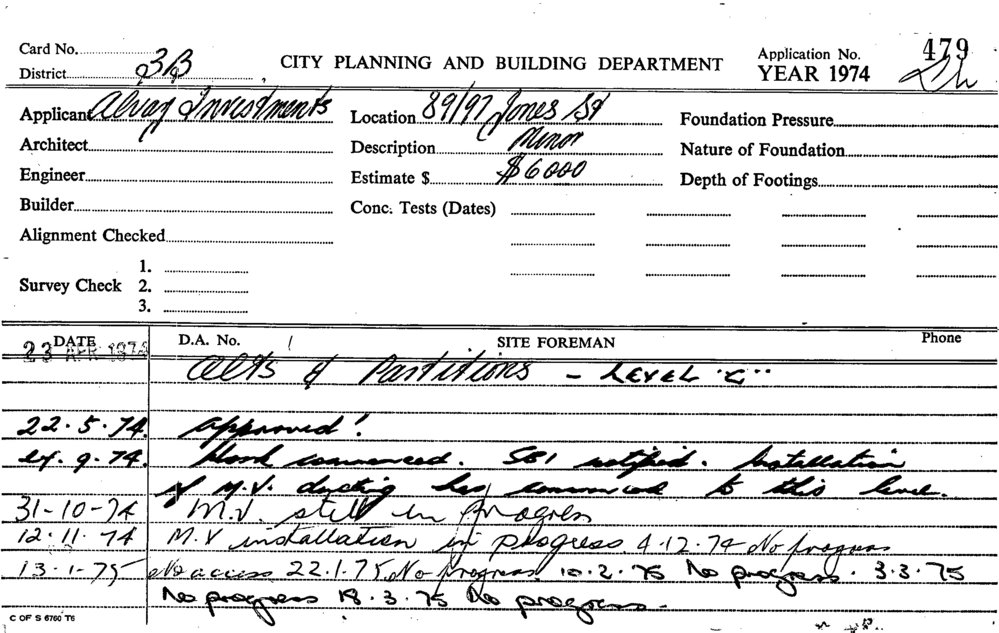 Card No. 
District 3B
CITY PLANNING AND BUILDING DEPARTMENT
Application No. 479
YEAR 1974
Applicant Investments
Location 89/97 Jones St
Foundation Pressure
Architect
Description Minor
Nature of Foundation
Engineer
Estimate $ $6000
Depth of Footings
Builder
Conc. Tests (Dates)
Alignment Checked
Survey Check 1.
2.
3.
DATE D.A. No. SITE FOREMAN Phone
23 APR 1974
Alts & Partitions - LEVEL "C"
22.5.74. Approved!
9.74. Work commenced. SBI notified. Installation
of M.V. ducting has commenced to this level.
31-10-74 M.V. still in progress
12.11.74 M.V installation in progress 4.12.74 No progress
13.1.75 No access 22.1.75 No progress 10.2.75 No progress. 3.3.75
No progress 18.3.75 No progress.
C OF S 6760 T6